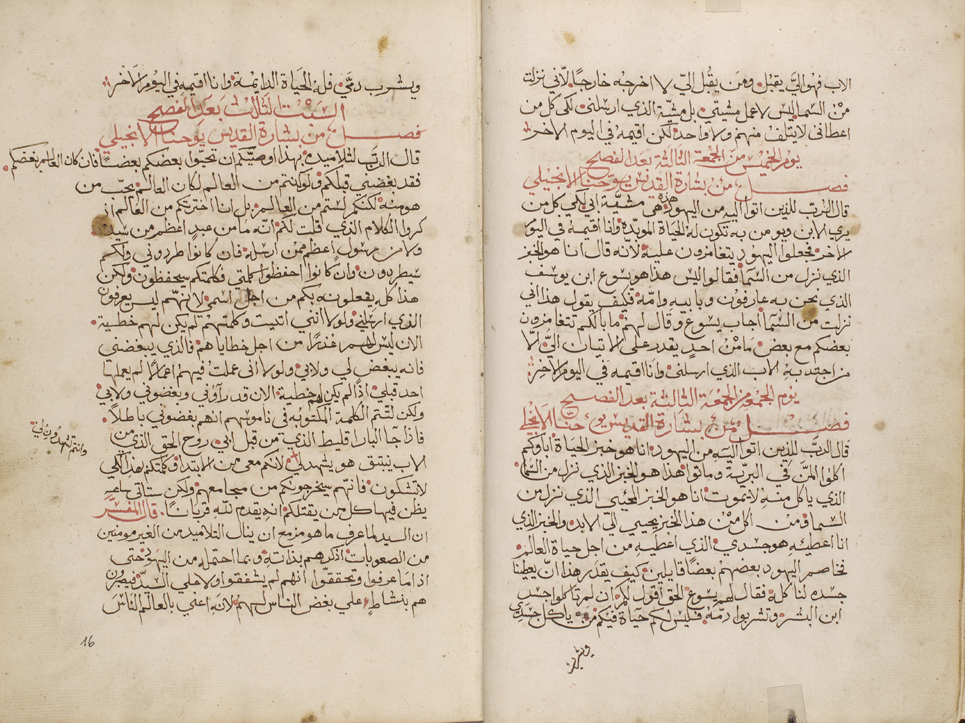 الاب فهو اليّ يقبل ومن يقبل اليّ لا اخرجه خارجًا لأني نزلت
من السما ليس لاعمل مشيتي بل مشية الذي ارسلني لكي كل من
اعطاني لا يتلف منهم ولا واحد لكن اقيمه في اليوم الاخر
يوم الخميس من الجمعة الثالثة بعد الفصح
فصل من بشارة القديس يوحنا الانجيلي
قال الرب للذين اتوا اليه من اليهود هذه هي مشية ابي لكي كل من
يري الابن ويومن به تكون له الحياة الموبدة وانا اقيمه في اليوم
الاخر فجعلوا اليهود يتغامزون عليه لانه قال انا هو الخبز
الذي نزل من السما فقالوا اليس هذا هو يسوع ابن يوسف
الذي نحن به عارفون وبابيه وامه فكيف يقول هذا اني
نزلت من السما اجاب يسوع وقال لهم ما بالكم تتغامزون
بعضكم مع بعض ما من احد يقدر على الاتيان اليّ الا
من اجتذبه الاب الذي ارسلني وانا اقيمه في اليوم الاخر
يوم الجمعة من الجمعة الثالثة بعد الفصح
فصل من بشارة القديس يوحنا الانجيلي
قال الرب للذين اتوا اليه من اليهود انا هو خبز الحياة اباوكم
اكلوا المن في البرية وماتوا هذا هو الخبز الذي نزل من السما
الذي ياكل منه لا يموت انا هو الخبز المحيي الذي نزل من
السما فمن اكل من هذا الخبز يحيي الي الابد والخبز الذي
انا اعطيه هو جسدي الذي اعطيه من اجل حياة العالم
تخاصم اليهود بعضهم بعضًا قايلين كيف يقدر هذا ان يعطينا
جسده لناكله فقال لهم يسوع الحق اقول لكم ان لم تاكلوا جسد
ابن البشر وتشربوا دمه فليس لكم حياة فيكم من ياكل جسدي
ويشرب
ويشرب دمي فله الحياة الدايمة وانا اقيمه في اليوم الاخر
السبت الثالث بعد الفصح
فصل من بشارة القديس يوحنا الانجيلي
قال الرب لتلاميذه بهذا اوصيكم ان تحبوا بعضكم بعضًا فان كان العالم يبغضكم
فقد بغضني قبلكم ولو كنتم من العالم لكان العالم يحب من
هو منه لكنكم لستم من العالم بل انا اخترتكم من العالم اذ
كروا الكلام الذي قلت لكم انه ما من عبد اعظم من سيده
ولا من رسول اعظم ممن ارسله فان كانوا طردوني ولكم
سيطردون وان كانوا احفظوا كلمتي فكلمتكم سيحفظون ولكن
هذا كله يفعلونه بكم من اجل اسمي لانهم ليس يعرفون
الذي ارسلني ولو لا انني اتيت وكلمتهم لم يكن لهم خطية
الان ليس لهم عذرًا من اجل خطاياهم فالذي يبغضني
فانه يبغض لي ولابي ولو لا اني عملت فيهم اعمالا لم يعملها
احد قبلي اذًا لم يكن لهم خطية الان قد راوني وبغضوني ولابي
ولكن لتتم الكلمة المكتوبه في ناموسهم انهم بغضوني باطلاً
فاذا جا البارا قليط الذي من قبل ابي روح الحق الذي من
الاب ينبثق هو يشهد لي لانكم معي من الابتدا وكلمتكم بهذا لكي
لا تشكون فانهم سيخرجونكم من مجامعهم ولكن ستاتي ساعه
يظن فيها كل من يقتلكم انه يقدم لله قربانًا قال المفسر
ان السيد لما عرف ما هو مزمع ان ينال التلاميذ من الغير مومنين
من الصعوبات اذكرهم بذاته وبما احتمله من اليهود حتى
اذا ما عرفوا وتحققوا انهم لم يشفقوا ولا علي السيد فيصبرون
هم بنشاط علي بغض الناس لهم لانه اعني بالعالم الناس
وانتم تشهدون لي
16